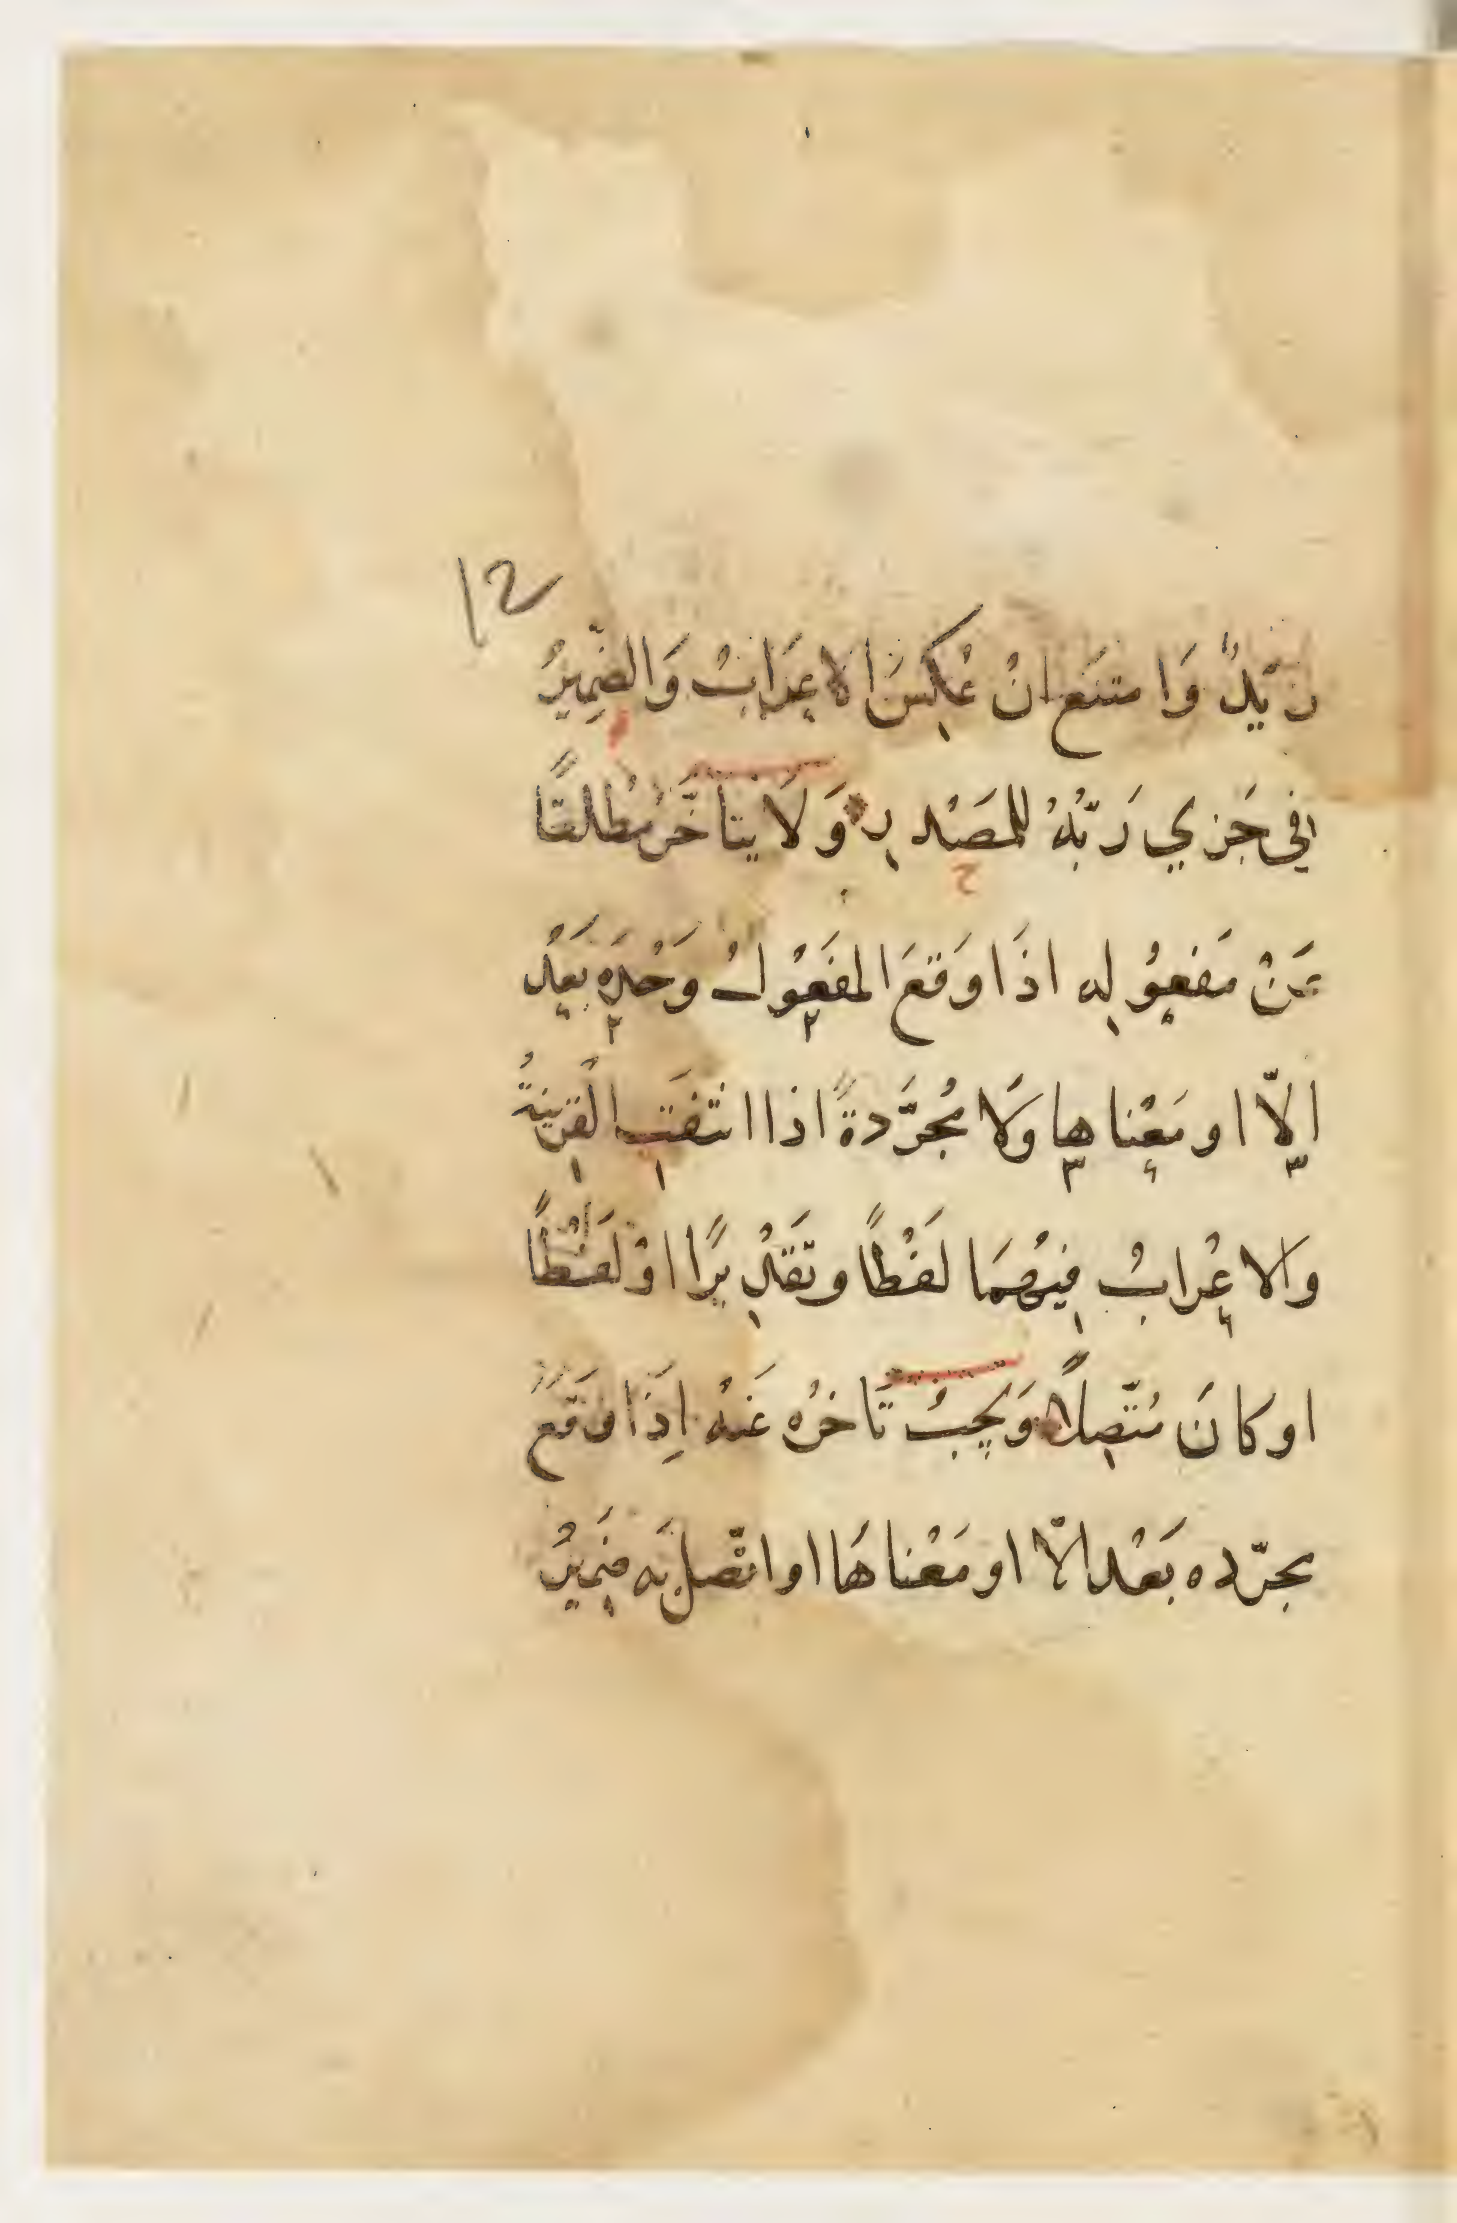 12
زَيْدٌ وَامتنَع انْ عُكِسَ الاعِرَابُ وَالضّمِيرُ
في جَزي رَبّهُ للمصَدرِ وَلَا يتأخّرُ مُطلقًا
عَنْ مَفعوُلِه اذَا وَقعَ المفَعوُلُ وَحْدَهِ بَعدُ
الّا او مَعْناها وَلَا مُجرَّدةً اذا انتفَتِ القرينةُ
والاعْرابُ فيهُمَا لَفْظًا وتَقدْيرًا اوْ لَفْظًا
او كانَ مُتّصِلًا وَيجِبُ تَاخرُه عَنهُ اِذَا وَقَعَ
بجرّده بَعْدَ الّا او مَعْناهَا او اتّصلَ بَه ضَمِيرُ